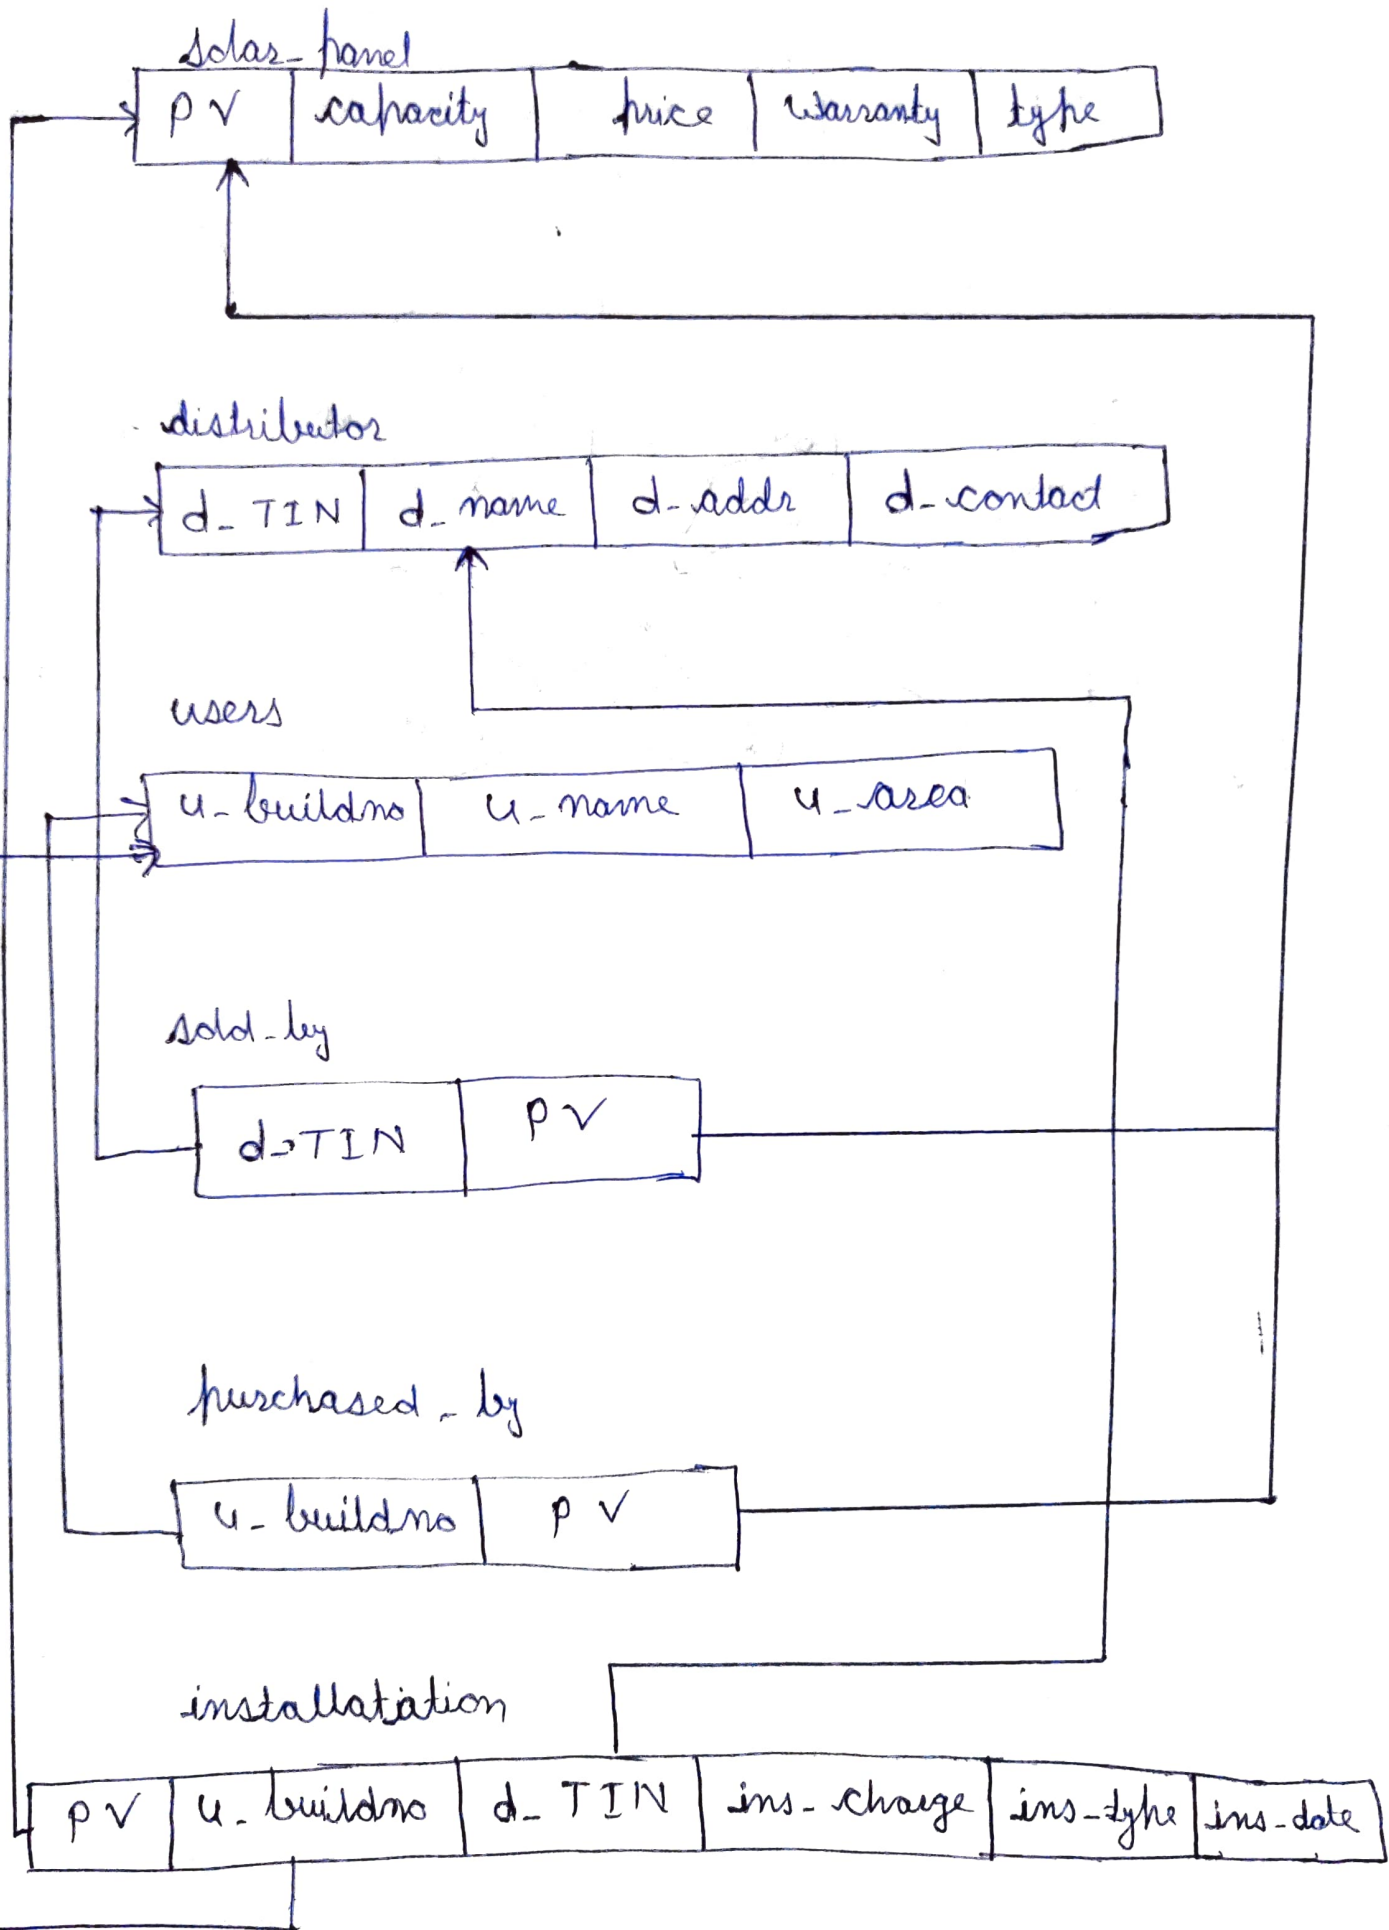 solar_panel
PV capacity price warranty type
distributor
d_TIN d_name d_addr d_contact
users
u_buildno u_name u_area
sold_by
d_TIN PV
purchased_by
u_buildno PV
installatiation
PV u_buildno d_TIN ins_charge ins_type ins_date